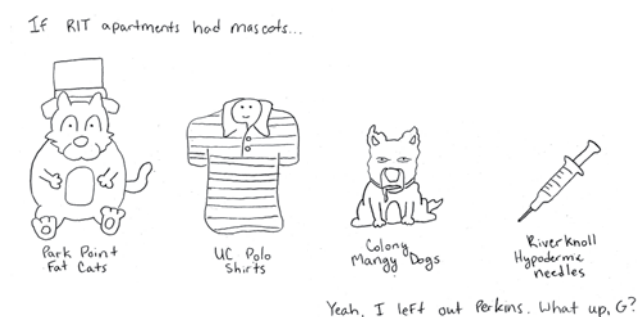 If RIT apartments had mascots...
Park Point
Fat Cats
UC Polo
Shirts
Colony
Mangy Dogs
Riverknoll
Hypodermic
needles
Yeah. I left out Perkins. What up, G?